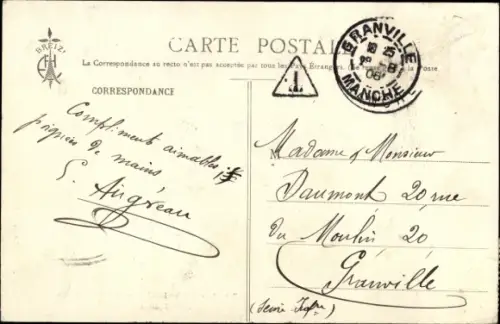 BREIZ
CARTE POSTALE
La Correspondance au recto n'est pas acceptée par tous les Pays Étrangers. (Se la Poste
CORRESPONDANCE
GRANVILLE
MANCHE
T
Compliment aimables et
poignées de mains
E. Augéreau
Madame & Monsieur
Daumont 20, rue
du Moulin 20
Granville
(Seine Infre)